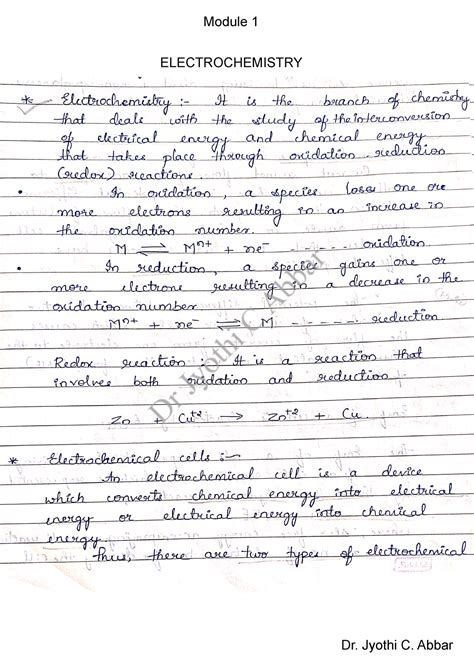 Module 1
ELECTROCHEMISTRY
* Electrochemistry :- It is the branch of chemistry
that deals with the study of the interconversion
of electrical energy and chemical energy
that takes place through oxidation reduction
(redox) reactions.
• In oxidation, a species loses one or
more electrons resulting in an increase in
the oxidation number.
M ⇌ Mⁿ⁺ + ne⁻ ----- oxidation
• In reduction, a species gains one or
more electrons resulting in a decrease in the
oxidation number
Mⁿ⁺ + ne⁻ ⇌ M ----- reduction
Redox reaction : It is a reaction that
involves both oxidation and reduction.
Zn + Cu⁺² → Zn⁺² + Cu.
* Electrochemical cells :-
An electrochemical cell is a device
which converts chemical energy into electrical
energy or electrical energy into chemical
energy.
Thus, there are two types of electrochemical
Dr. Jyothi C. Abbar
Dr. Jyothi C. Abbar